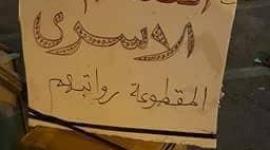 الاسرى
المقطوعة رواتبهم